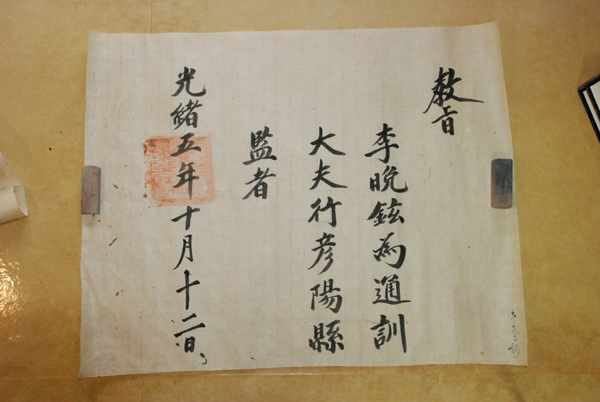 敎旨
李晩鉉為通訓
大夫行彦陽縣
監者
光緒五年十月十二日